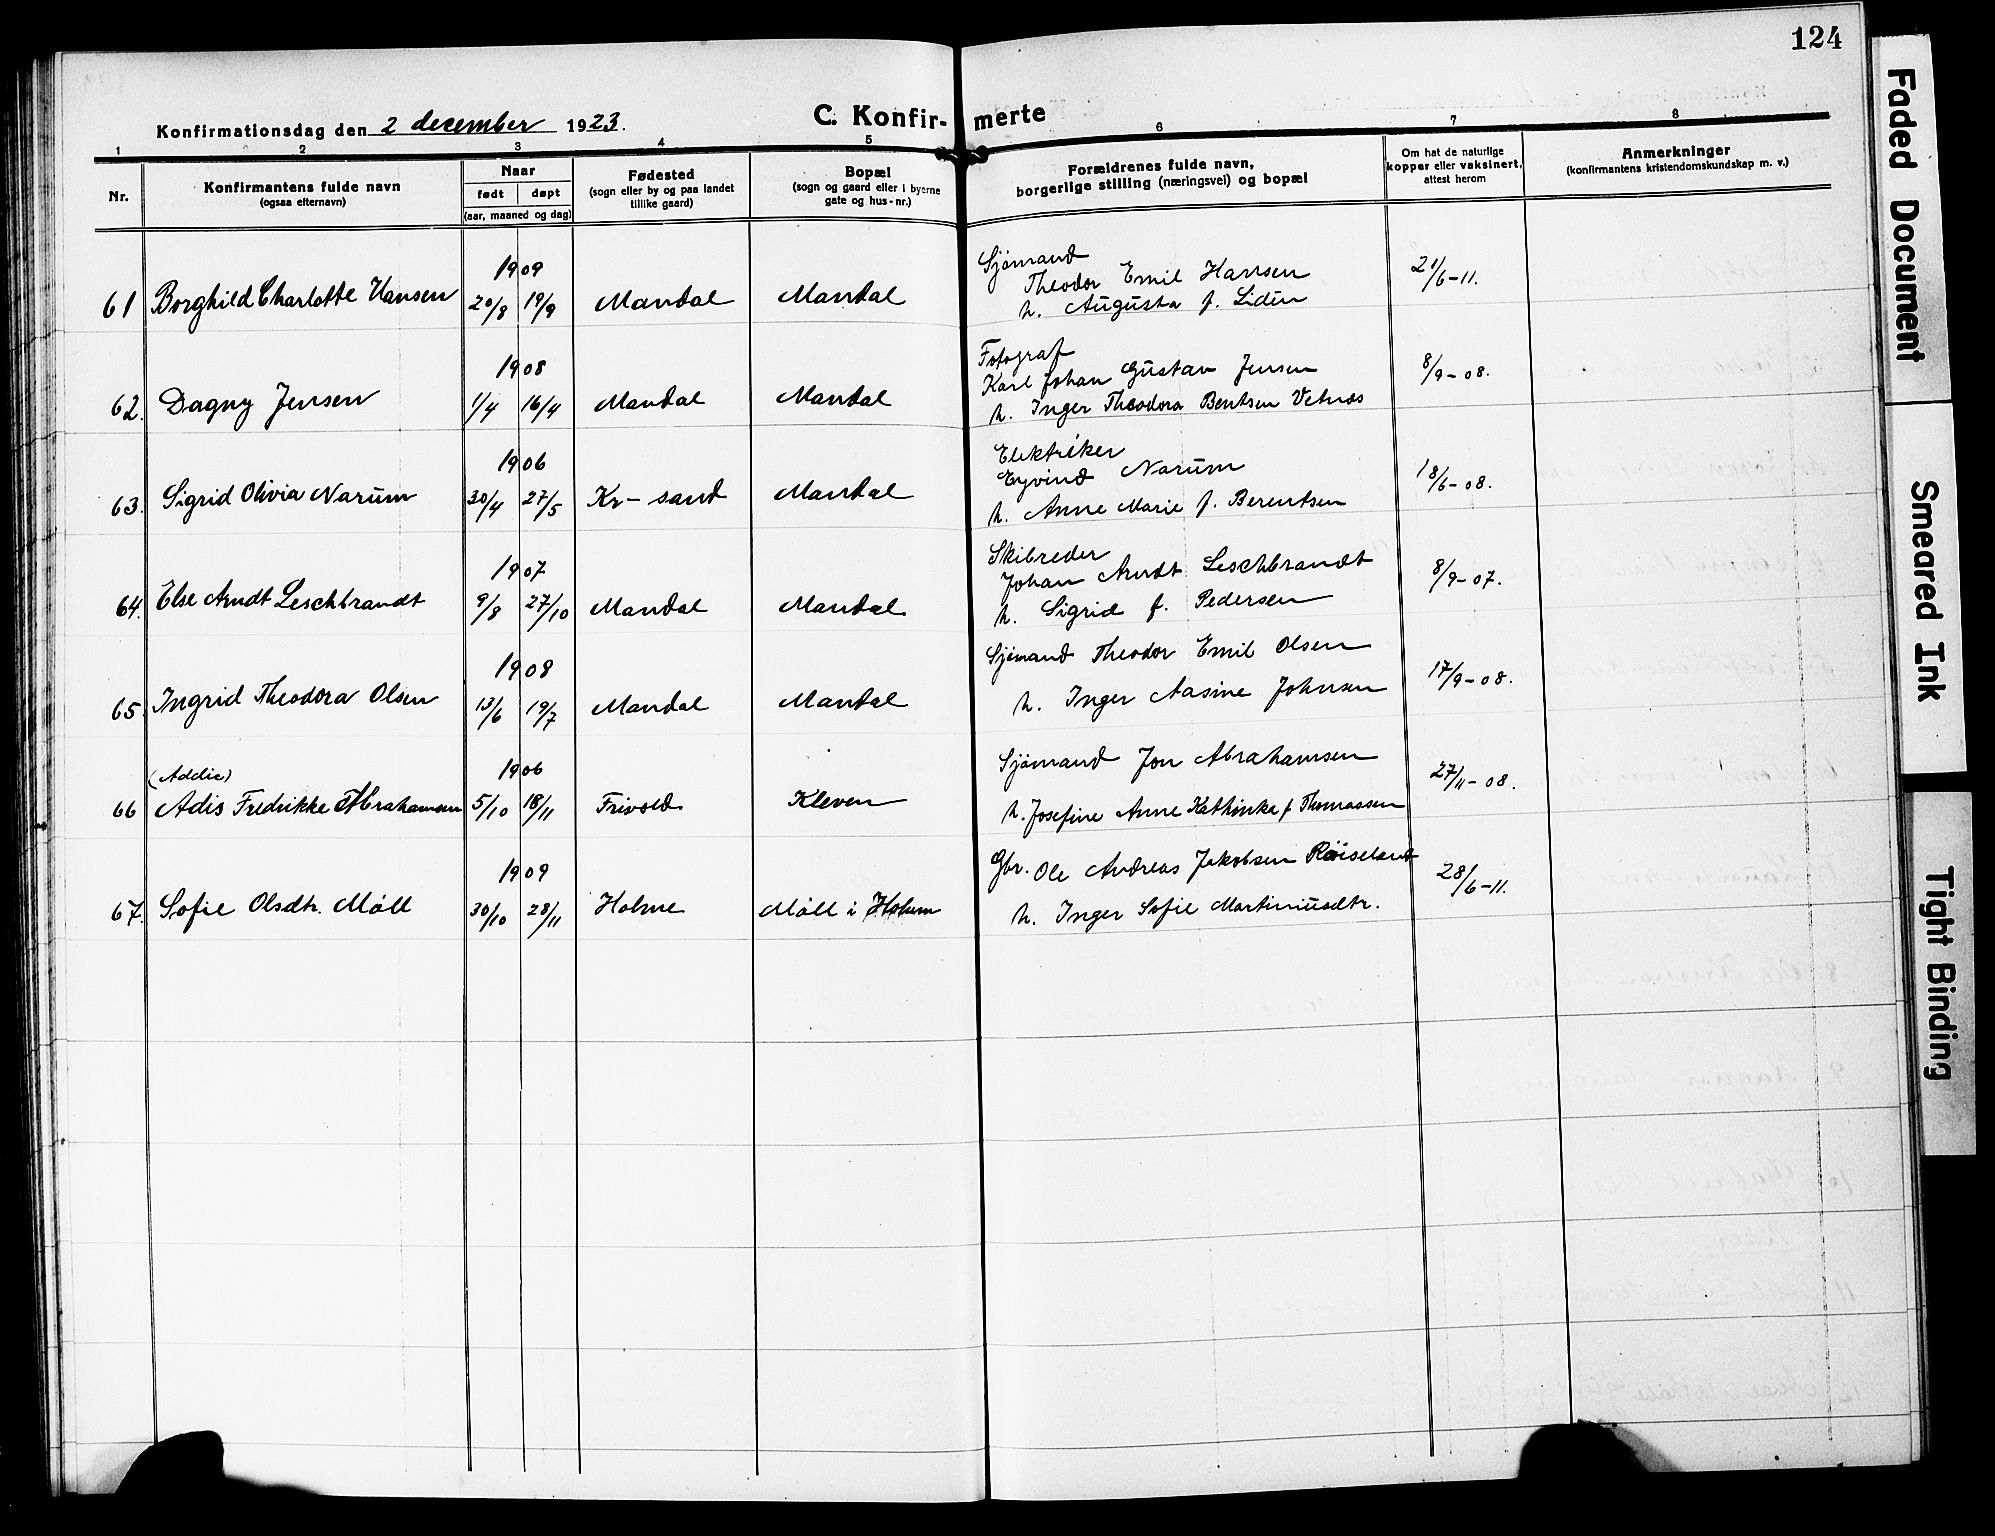 124
Konfirmationsdag den 2 december 1923.
C. Konfir- merte
1 2 3 4 5 6 7 8
Nr.
Konfirmantens fulde navn
(ogsaa efternavn)
Naar
født døpt
(aar, maaned og dag)
Fødested
(sogn eller by og paa landet
tillike gaard)
Bopæl
(sogn og gaard eller i byerne
gate og hus-nr.)
Forældrenes fulde navn,
borgerlige stilling (næringsvei) og bopæl
Om hat de naturlige
kopper eller vaksinert,
attest herom
Anmerkninger
(konfirmantens kristendomskundskap m. v.)
1909
61 Borghild Charlotte Hansen 20/8 19/9 Mandal Mandal
Sjömand
Theodor Emil Hansen
h. Augusta f. Lidin
21/6-11.
1908
62. Dagny Jensen 1/4 16/4 Mandal Mandal
Fotograf
Karl Johan Gustav Jensen
h. Inger Theodora Bentsen Vetnes
8/9-08.
1906
63. Sigrid Olivia Narum 30/4 27/5 Kr-sand Mandal
Elektriker
Eyvind Narum
h. Anne Marie f. Berentsen
18/6-08.
1907
64. Else Arndt Leschbrandt 9/8 27/10 Mandal Mandal
Skibreder
Johan Arndt Leschbrandt
h. Sigrid f. Pedersen
8/9-07.
1908
65. Ingrid Theodora Olsen 13/6 19/7 Mandal Mandal
Sjömand Theodor Emil Olsen
h. Inger Aasine Johnsen
17/9-08.
(Addie)
1906
66 Adis Fredrikke Abrahamsen 5/10 18/11 Frivold Kleven
Sjömand Jon Abrahamsen
h. Josefine Anne Kathinka f Thomassen
27/11-08.
1909
67. Sofie Olsdtr. Möll 30/10 28/11 Holme Möll i Holum
Gbr. Ole Andreas Jakobsen Röiseland
h. Inger Sofie Martiniusdtr.
28/6-11.
Faded Document
Smeared Ink
Tight Binding